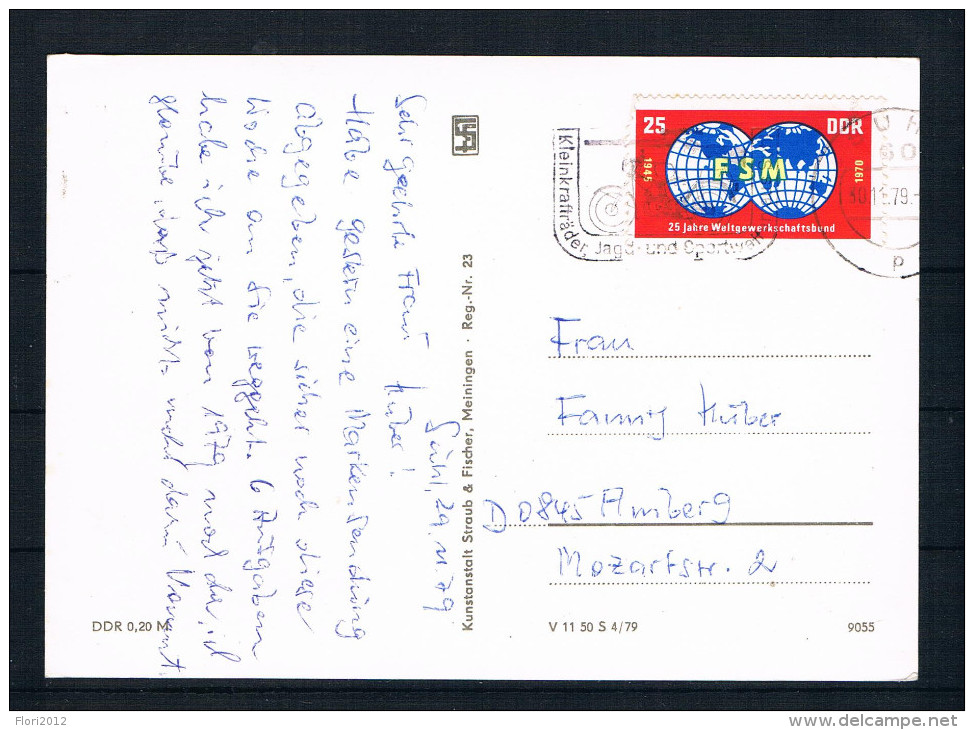 Suhl, 29.11.79
Sehr geehrte Frau Huber!
Habe gestern eine Markensendung
abgegeben, die sicher noch diese
Woche an Sie weggeht. 6 Ausgaben
habe ich jetzt von 1979 noch da, ich
glaube, daß nicht mehr dazu kommt.
Kunstanstalt Straub & Fischer, Meiningen · Reg.-Nr. 23
DDR 0,20 M
25 DDR
1945 FSM 1970
25 Jahre Weltgewerkschaftsbund
Kleinkrafträder, Jagd- und Sportwaffen
30.11.79.
Frau
Fanny Huber
D 0845 Amberg
Mozartstr. 2
V 11 50 S 4/79
9055
Flori2012
delcampe.net